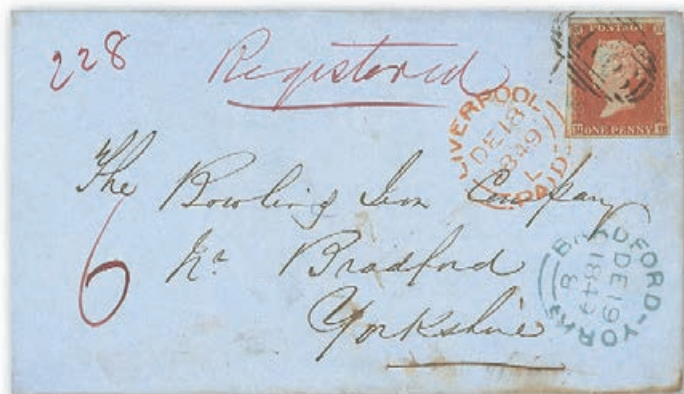 228 Registered
POSTAGE
ONE PENNY
LIVERPOOL
DE 18
1849
L
PAID
The Bowling Iron Company
Nr Bradford
Yorkshire
6
BRADFORD-YORKS
DE 19
1849
8